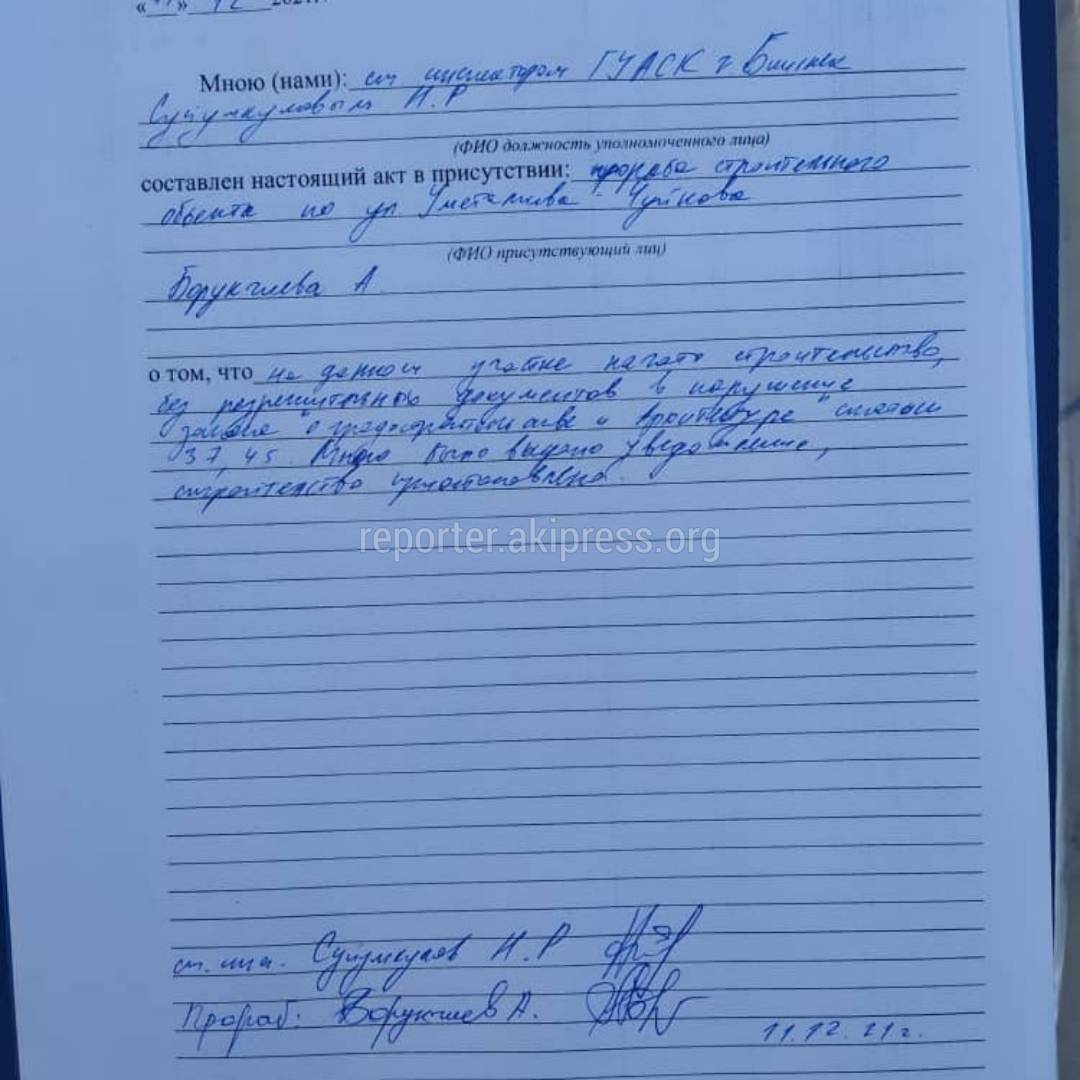 « 11 » 12 2021г.
Мною (нами): ст инспектором ГУАСК г Бишкек
Суйумкуловым Н. Р
(ФИО должность уполномоченного лица)
составлен настоящий акт в присутствии: прораба строительного
объекта по ул Уметалиева Чуйкова
(ФИО присутствующий лиц)
Борукчиева А.
о том, что на данном участке начато строительство,
без разрешительных документов в нарушение
закона "о градостроительстве и Архитектуре" статьи
37, 45. Мною было выдано уведомление,
строительство приостановлено.
reporter.akipress.org
ст. инс. Суйумкулов Н. Р
Прораб: Борукчиев А.
11.12.21г.